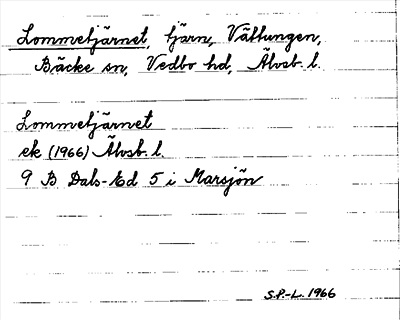 Lommetjärnet, tjärn, Vättungen,
Bäcke sn, Vedbo hd, Älvsb. l.
Lommetjärnet
ek (1966) Älvsb. l.
9 B Dals-Ed 5 i Marsjön
S.P.-L. 1966